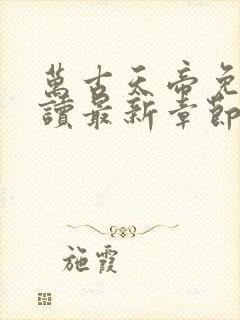 萬古天帝免
讀最新章節
施霞